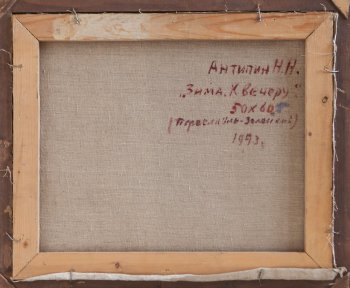 Антипин Н.Н.
"Зима. К вечеру".
50х60
(Переславль-Залесский)
1993г.